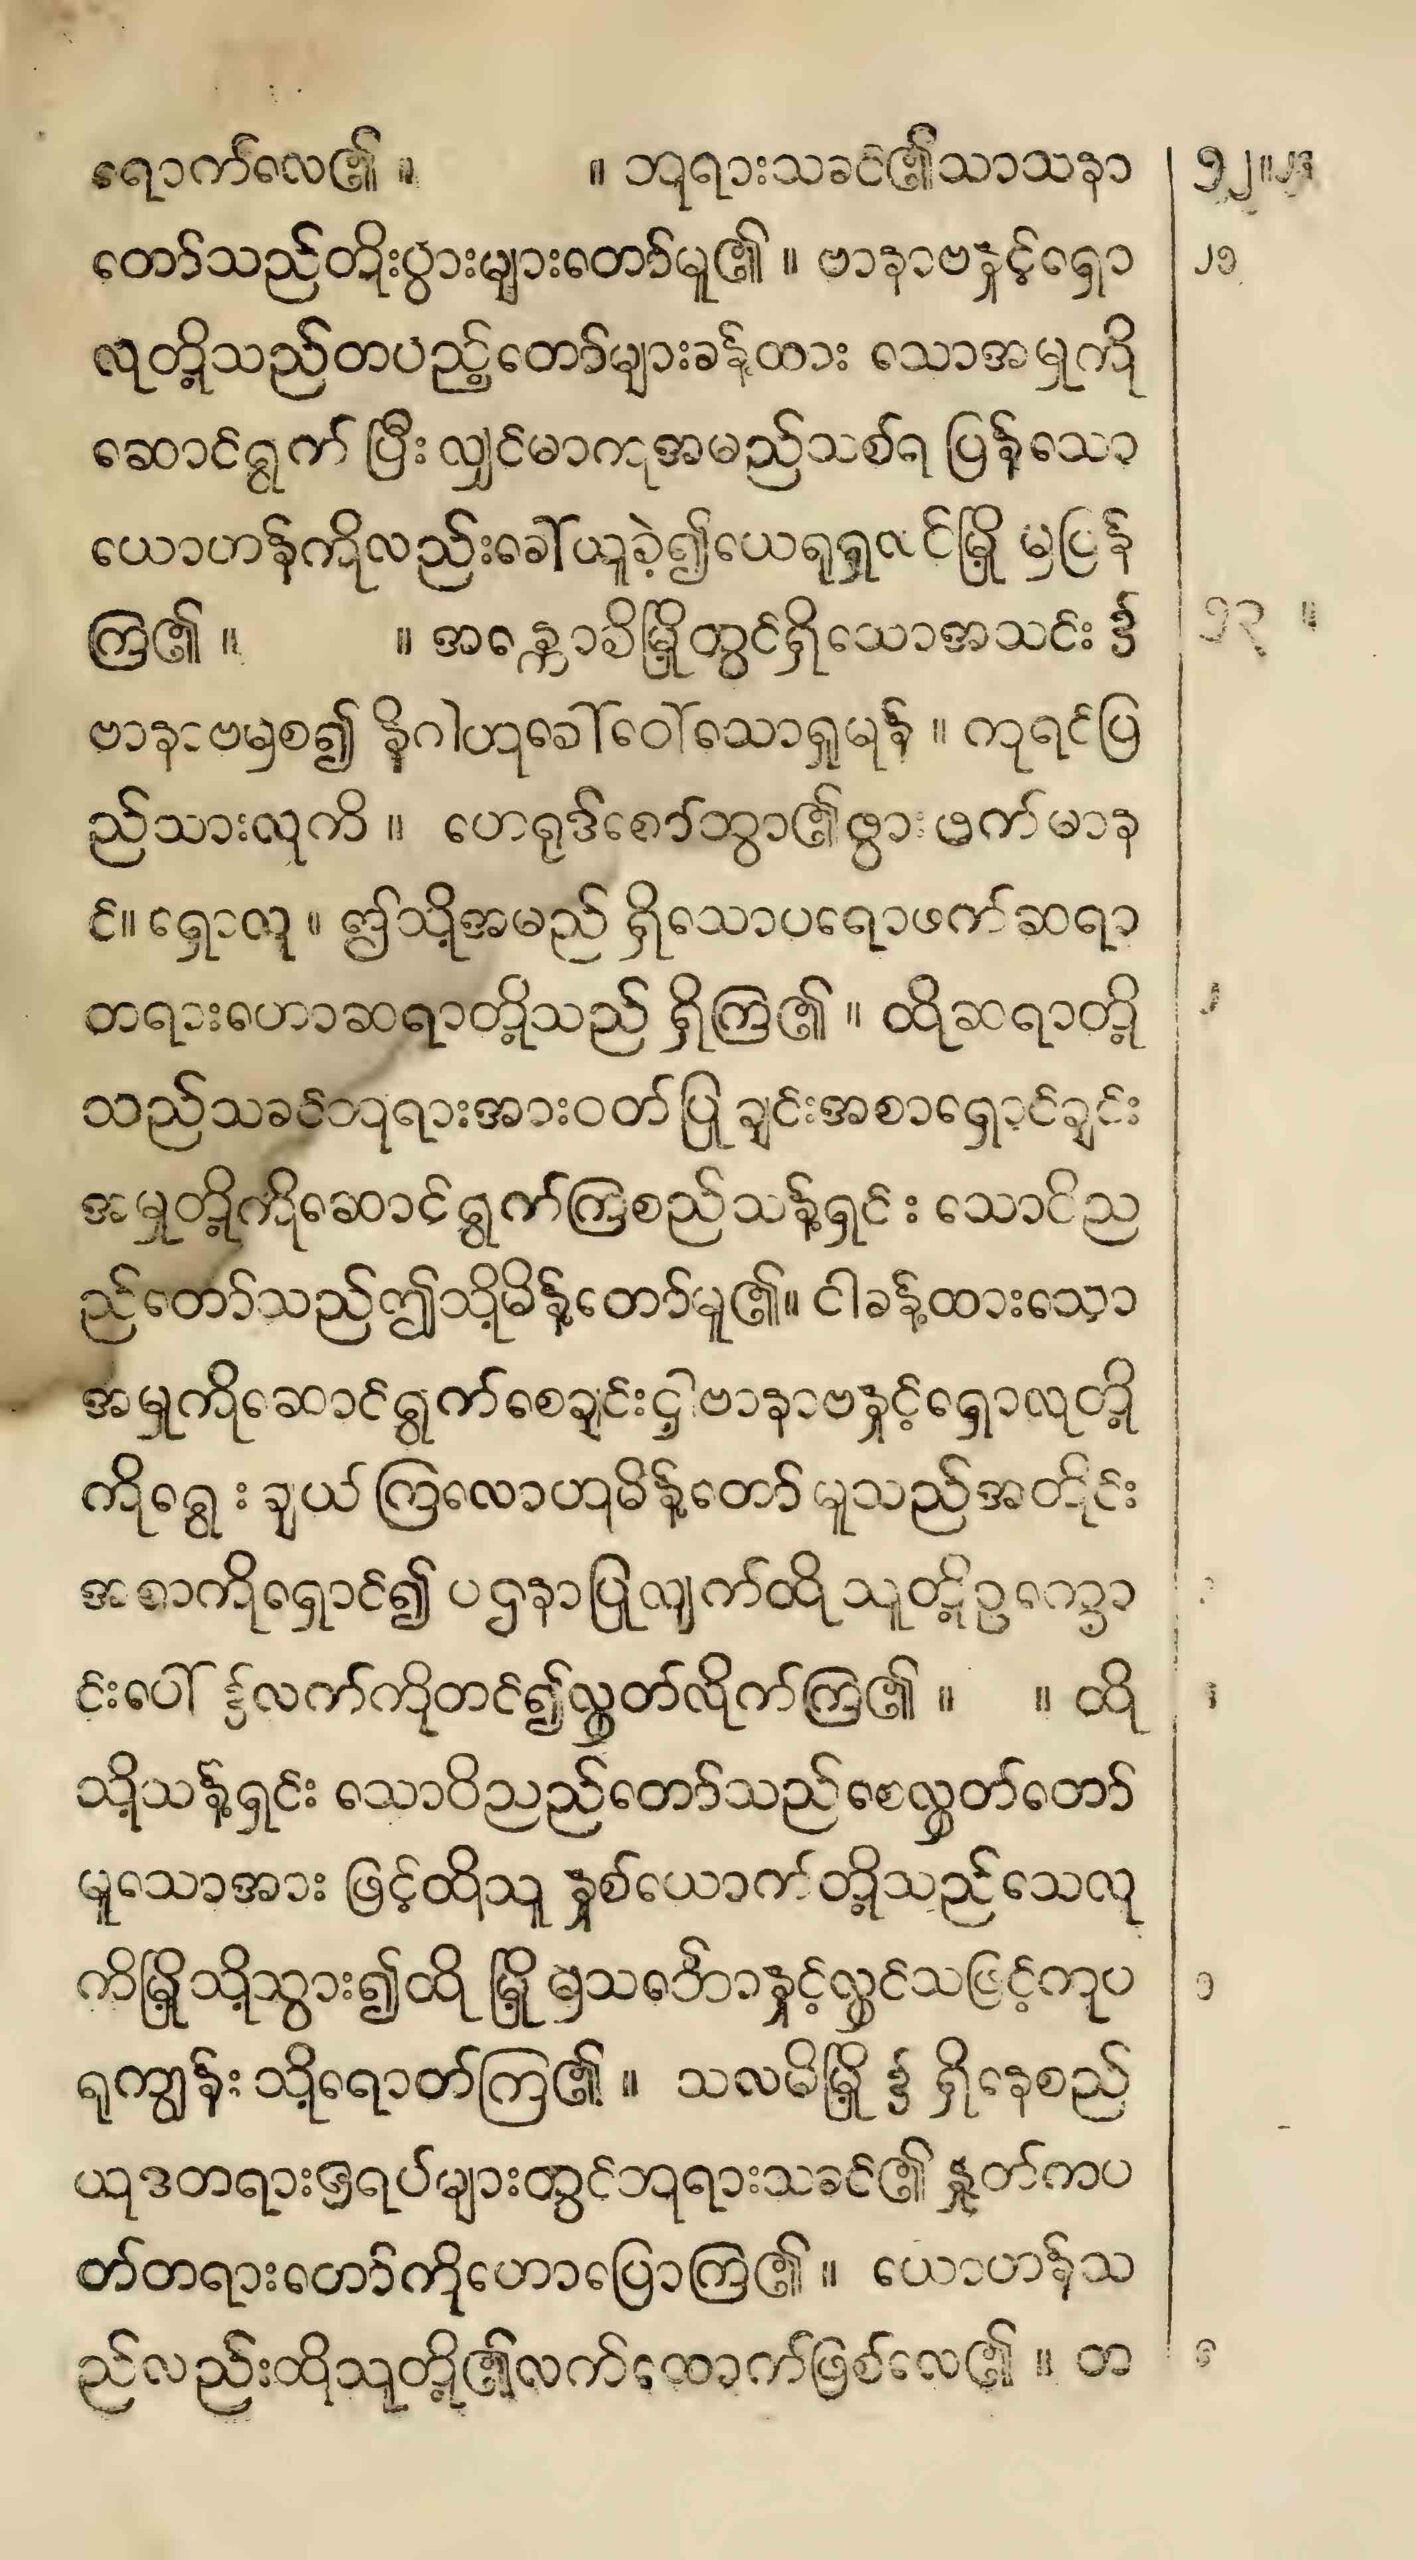 ရောက်လေ၏ ။ ။ ဘုရားသခင်၏သာသနာ ၁၂။၂၄
တော်သည်တိုးပွားများတော်မူ၏ ။ ဗာနာဗနှင့်ရှော ၂၅
လုတို့သည်တပည့်တော်များခန့်ထား သောအမှုကို
ဆောင်ရွက် ပြီး လျှင်မာကုအမည်သစ်ရ ပြန်သော
ယောဟန်ကိုလည်းခေါ်ယူခဲ့၍ယေရုရှလင်မြို့ မှပြန်
ကြ၏ ။ ။ အန္တောခိမြို့တွင်ရှိသောအသင်း ၌ ၁၃ ။
ဗာနာဗမှစ၍ နိဂါဟုခေါ်ဝေါ်သောရှုမုန် ။ ကုရင်ပြ
ည်သားလုကိ ။ ဟေရုဒ်စော်ဘွာ၏ဖွားဖက်မာန
င်။ ရှောလု ။ ဤသို့အမည် ရှိသောပရောဖက်ဆရာ
တရားဟောဆရာတို့သည် ရှိကြ၏ ။ ထိုဆရာတို့ ၂
သည်သခင်ဘုရားအားဝတ်ပြု ချင်းအစာရှောင်ချင်း
အမှုတို့ကိုဆောင်ရွက်ကြစဉ်သန့်ရှင်း သောဝိညာ
ည်တော်သည်ဤသို့မိန့်တော်မူ၏။ ငါခန့်ထားသော
အမှုကိုဆောင်ရွက်စေချင်းငှါဗာနာဗနှင့်ရှောလုတို့
ကိုရွေး ချယ်ကြလောဟုမိန့်တော်မူသည်အတိုင်း
အစာကိုရှောင်၍ ပဌနာပြုလျက်ထိုသူတို့ဥက္ခော
င်းပေါ် ၌လက်ကိုတင်၍လွှတ်လိုက်ကြ၏ ။ ။ ထို ၄
သို့သန့်ရှင်း သောဝိညည်တော်သည်စေလွှတ်တော်
မူသောအား ဖြင့်ထိုသူ နှစ်ယောက်တို့သည်သေလု
ကိမြို့သို့သွား၍ထို မြို့မှသင်္ဘောနှင့်လွှင်သဖြင့်ကုပ
ရုကျွန်း သို့ရောတ်ကြ၏ ။ သလမိမြို့ ၌ ရှိနေစည် ၅
ယုဒတရားဇရပ်များတွင်ဘုရားသခင်၏ နှုတ်ကပ
တ်တရားတော်ကိုဟောပြောကြ၏ ။ ယောဟန်သ
ည်လည်းထိုသူတို့၏လက်ထောက်ဖြစ်လေ၏ ။ တ ၆